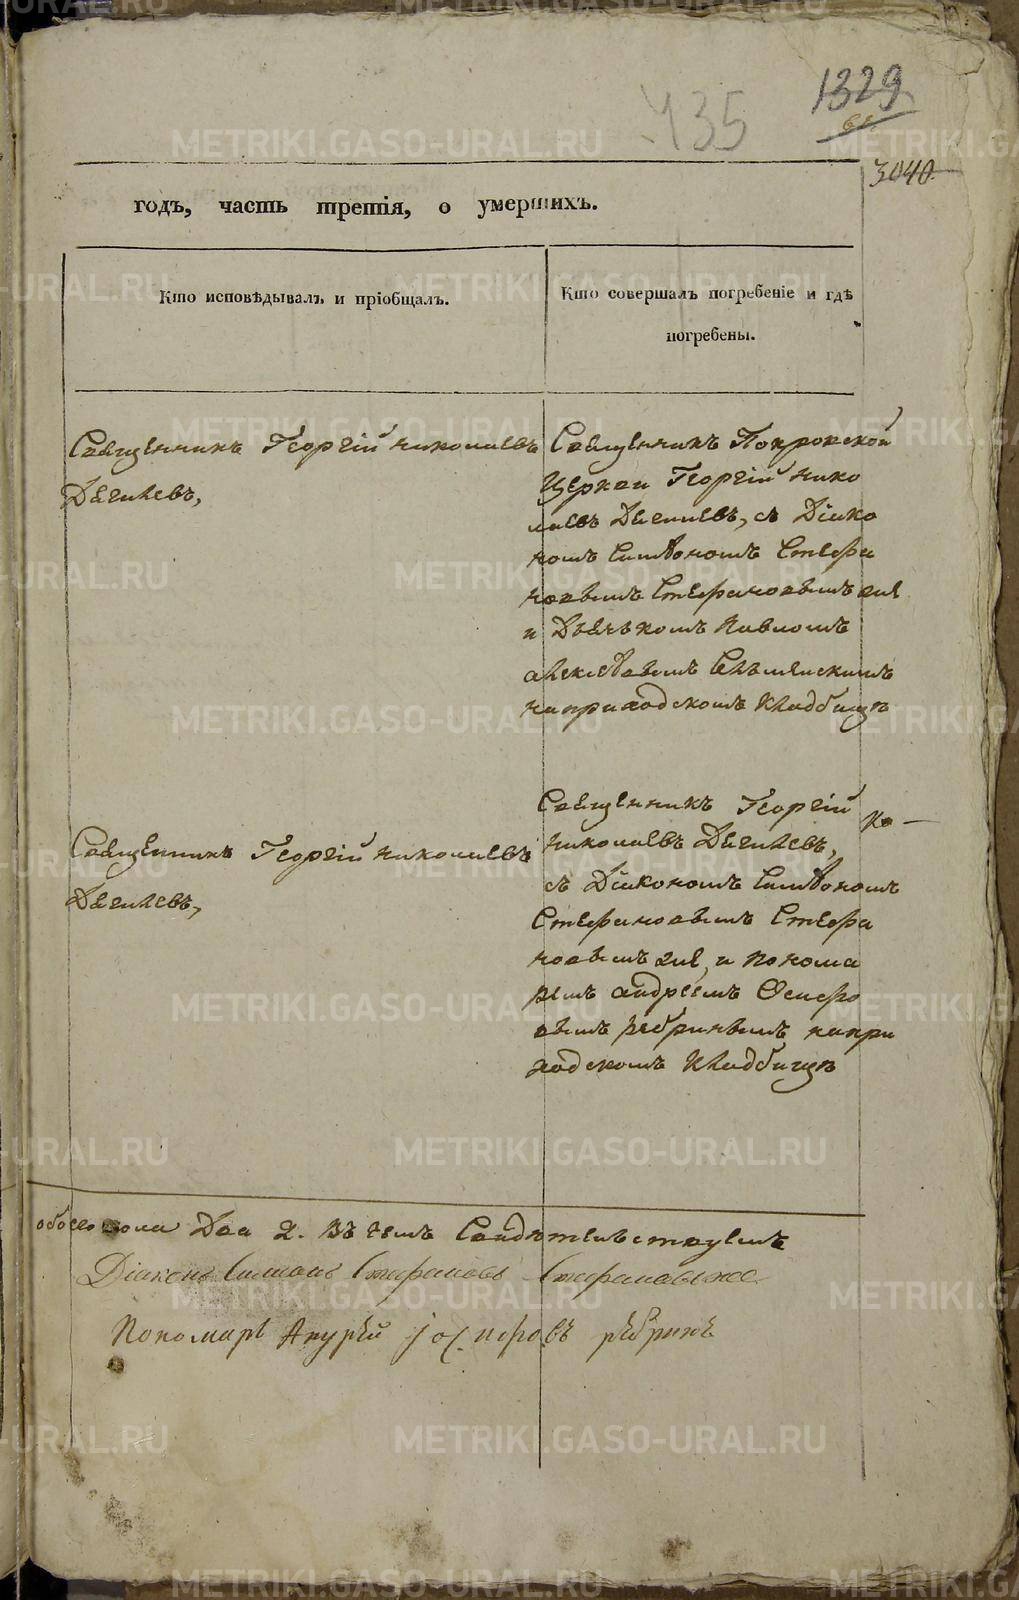 435
1329
61.
3040
годъ, часть третія, о умершихъ.
Кто исповѣдывалъ и пріобщалъ.
Кто совершалъ погребеніе и гдѣ
погребены.
Священникъ Георгій николаевъ
Дягилевъ,
Священникъ Покровской
Церкви Георгій нико
лаевъ Дягилевъ, съ Діако
номъ Симѵономъ Стефа
новымъ Стефановымъ же
и Дьячкомъ Павломъ
алексѣевымъ
на приходскомъ кладбищѣ
Священникъ Георгій
николаевъ Дягилевъ,
съ Діакономъ Симѵономъ
Стефановымъ Стефа
новымъ же, и понома
ремъ андреемъ Осипо
вымъ ребринымъ на при
ходскомъ кладбищѣ
Священникъ Георгій николаевъ
Дягилевъ,
обоего пола Два 2. Въ чемъ Свидѣтельствуемъ
Діаконъ Симеонъ Стефановъ Стефановъ же
Пономарь Андрей Іосифовъ ребринъ
METRIKI.GASO-URAL.RU